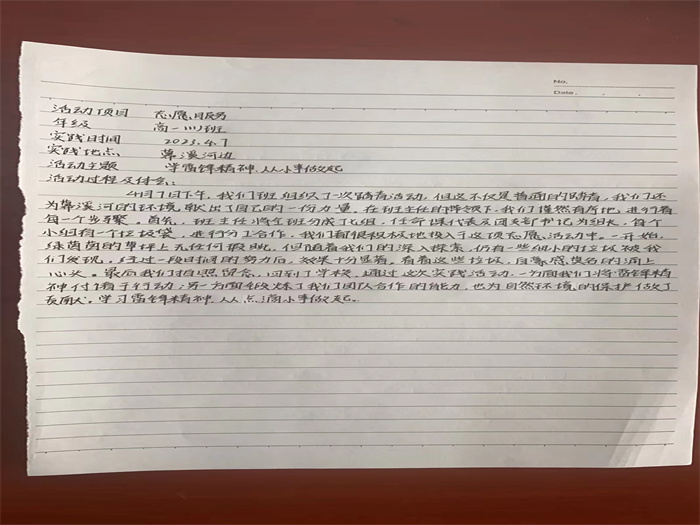 No.
Date.
活动项目 志愿服务
年级 高一(11)班
实践时间 2023.4.7
实践地点 幕溪河边
活动主题 学雷锋精神,从小事做起
活动过程及体会:
4月7日下午,我们班组织了一次踏青活动,但这不仅是普通的踏青,我们还
为幕溪河的环境献出了自己的一份力量。在班主任的带领下,我们僅然有序地进行着
每一个步骤。首先,班主任将全班分成了七组,任命课代表及团支部书记为组长,每个
小组有一个垃圾袋,进行分工合作,我们看很积极地投入于这项志愿活动中。一开始,
绿茵茵的草坪上无任何瑕疵,但随着我们的深入探索,仍有一些细小的垃圾被我
们发现,经过一段时间的努力后,效果十分显著,看着这些垃圾,自豪感莫名的涌上
心头。最后我们拍照留念,回到了学校。通过这次实践活动,一方面我们将雷锋精
神付诸于行动,另一方面也锻炼了我们团队合作的能力,也为自然环境的保护做了
贡献。学习雷锋精神,从点滴小事做起。